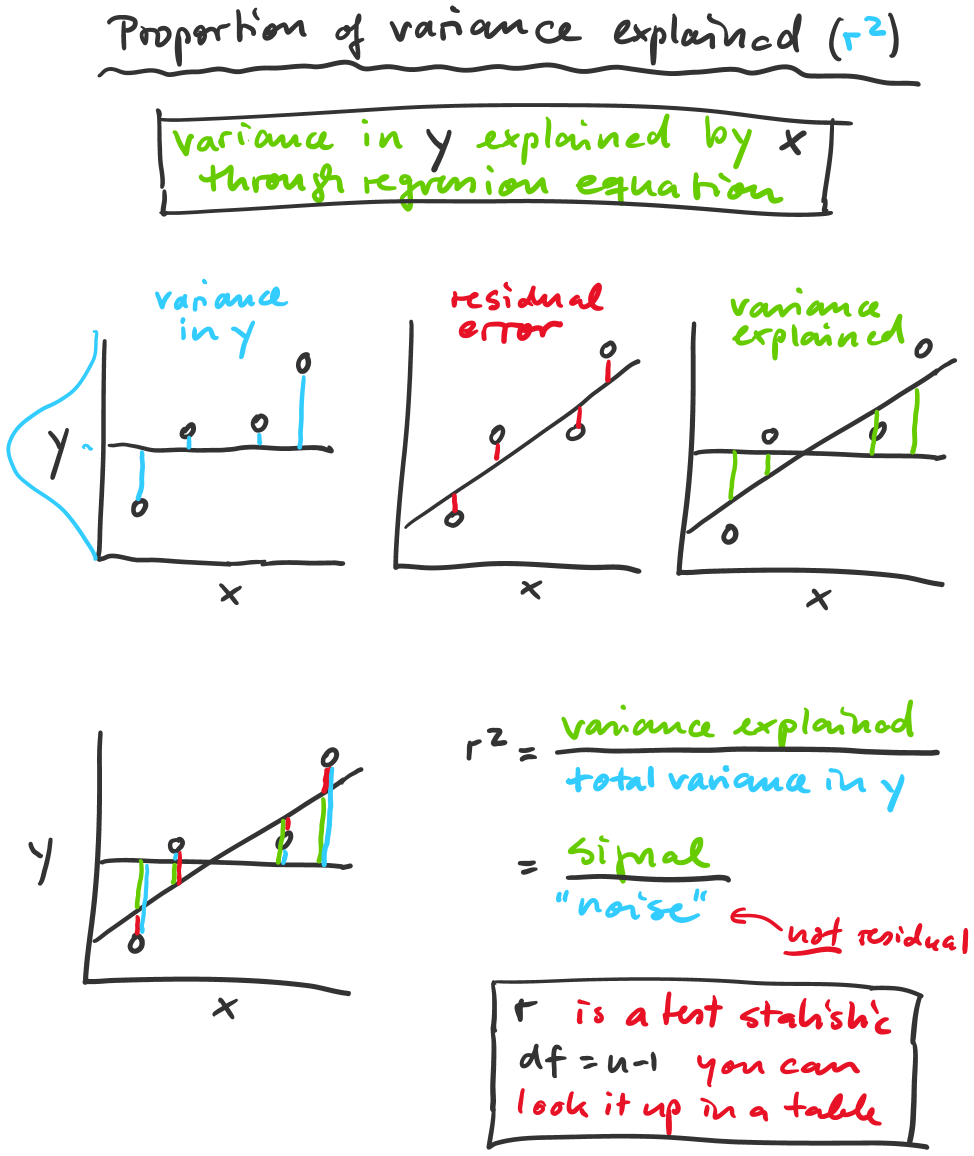 Proportion of variance explained (r²)
variance in y explained by x
through regression equation
variance
in y
residual
error
variance
explained
y
x
x
x
y
x
r² = variance explained
total variance in y
= signal
"noise"
not residual
r is a test statistic
df = n-1 you can
look it up in a table